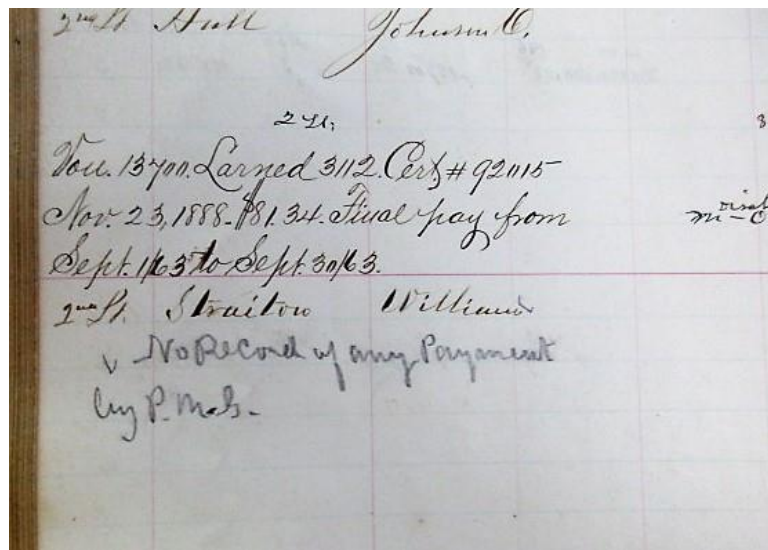 2nd Lt. Hull Johnson C.
2 Lt.
3
Vou. 13700. Larned 3112. Cert # 92015
Nov. 23, 1888. $81.34. Final pay from
Sept. 1/63 to Sept. 30/63.
2nd Lt. Straiton William
✓ No Record of any Payment
by P. M. G.